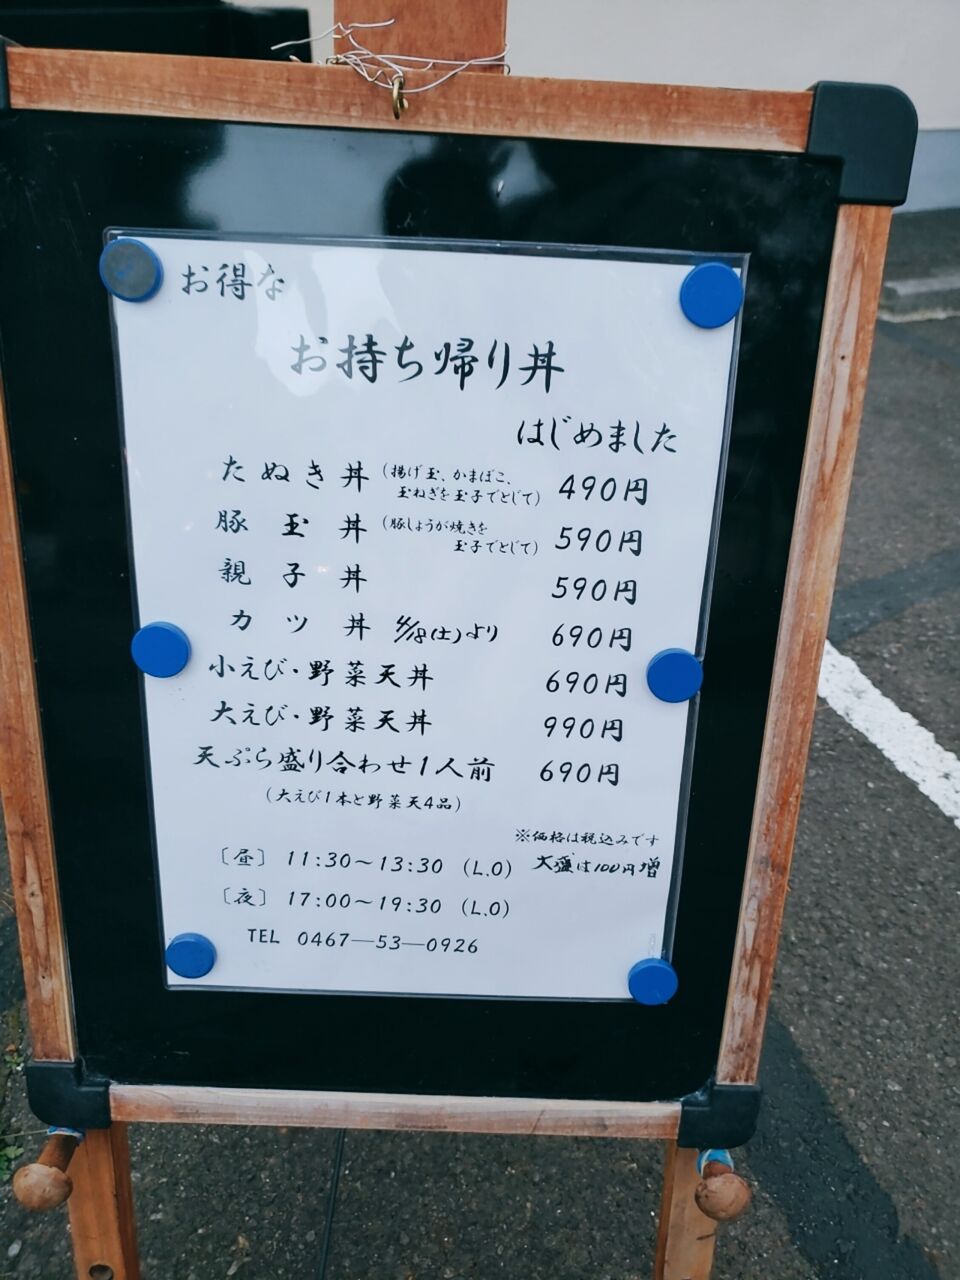 お得な
お持ち帰り丼
はじめました
たぬき丼 (揚げ玉、かまぼこ、玉ねぎを玉子でとじて) 490円
豚玉丼 (豚しょうが焼きを玉子でとじて) 590円
親子丼 590円
カツ丼 4/18(土)より 690円
小えび・野菜天丼 690円
大えび・野菜天丼 990円
天ぷら盛り合わせ1人前 690円
(大えび1本と野菜天4品)
※価格は税込みです
大盛は100円増
〔昼〕 11:30～13:30 (L.O)
〔夜〕 17:00～19:30 (L.O)
TEL 0467―53―0926